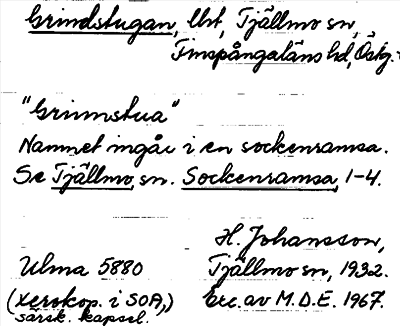 Grindstugan, lht, Tjällmo sn,
Finspångaläns hd, Östg.
"Grinnstua"
Namnet ingår i en sockenramsa.
Se Tjällmo, sn. Sockenramsa, 1-4.
H. Johansson,
Ulma 5880 Tjällmo sn, 1932.
(Xerokop. i SOA,) Exc. av M.D.E. 1967.
särsk. kapsel.